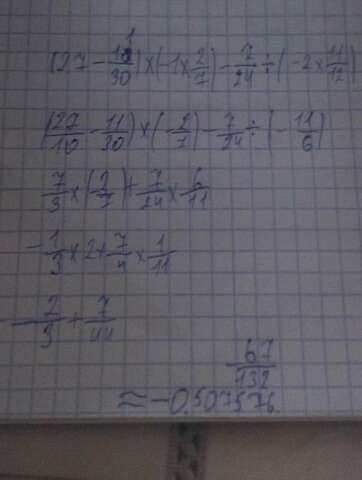 (27 - 11/30) × (-1 × 2/7) - 7/24 ÷ (-2 × 11/12)
(27/10 - 11/30) × (-2/7) - 7/24 ÷ (-11/6)
7/3 × (2/7) + 7/24 × 6/11
-1/3 × 2 + 7/4 × 1/11
-2/3 + 7/44
-67/132
≈ -0.507576